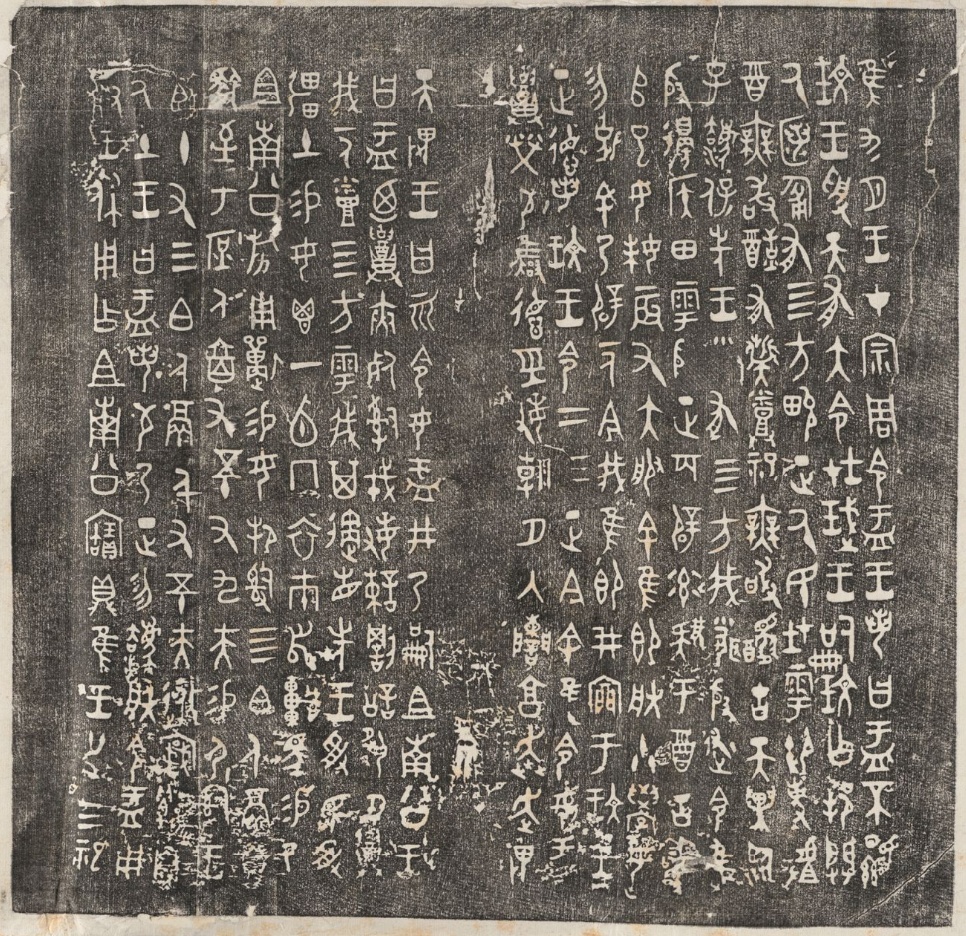 隹九月王才宗周令盂王若曰盂不顯
玟王受天有大令在珷王嗣玟乍邦闢
厥匿匍有四方畯正厥民在雩御事䖒
酉無敢酖有祡烝祀無敢擾古天異臨
子灋保先王□有四方我聞殷述令隹
殷邊侯田雩殷正百辟率肄于酉古喪
師巳女妹辰又大服余隹即朕小學女
勿克余乃辟一人今我隹即井㐭于玟王
正德若玟王令二三正今余隹令女盂
召榮敬雍德巠敏朝夕入諫享奔走畏
天畏王曰而令女盂井乃嗣且南公王
曰盂廼召夾死司戎敏諫罰訟夙夕召
我一人烝四方雩我其遹省先王受民受
彊土易女鬯一卣冂衣巿舄車馬易乃
且南公旂用狩易女邦司四白人鬲自
馭至于庶人六百又五十又九夫易尸司王
臣十又三白人鬲千又五十夫𨒫寰遷自
厥土王曰盂若敬乃正勿灋朕令盂用
對王休用乍且南公寶鼎隹王廿又三祀